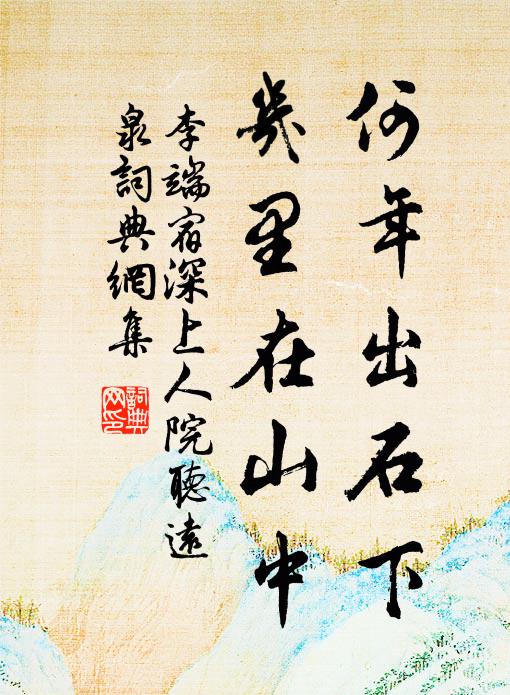 何年出石下
幾里在山中
李端宿深上人院聽遠
泉詞典網集
詞典
网印